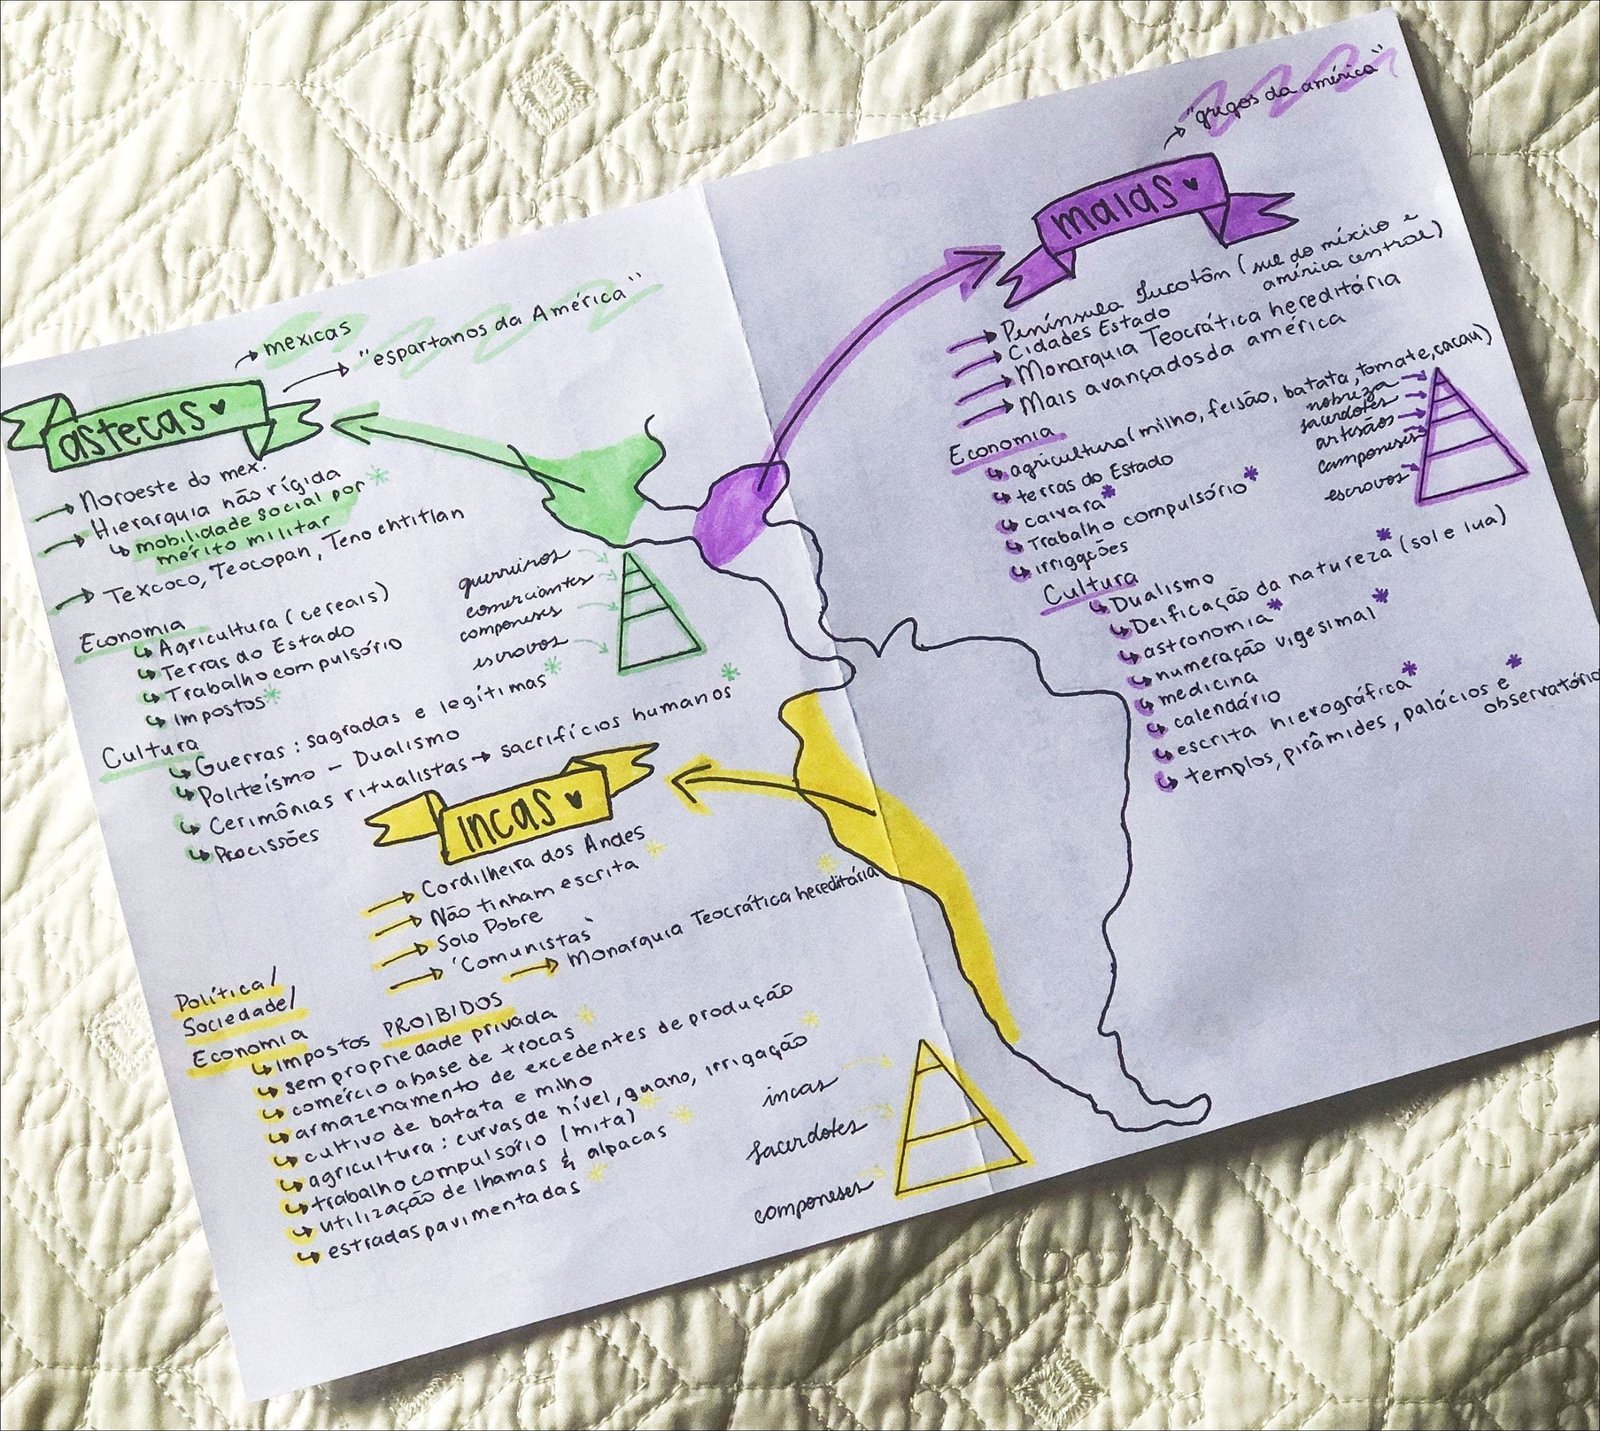 mexicas
"espartanos da América"
astecas
Noroeste do mex.
Hierarquia não rígida
mobilidade social por
mérito militar
Texcoco, Teocopan, Tenochtitlan
Economia
Agricultura (cereais)
Terras do Estado
Trabalho compulsório
Impostos
Cultura
Guerras: sagradas e legítimas
Politeísmo - Dualismo
Cerimônias ritualistas → sacrifícios humanos
Procissões
guerreiros
comerciantes
camponeses
escravos
incas
Cordilheira dos Andes
Não tinham escrita
Solo Pobre
"Comunistas"
Monarquia Teocrática hereditária
Política/
Sociedade/
Economia
Impostos PROIBIDOS
sem propriedade privada
comércio a base de trocas
armazenamento de excedentes de produção
cultivo de batata e milho
agricultura: curvas de nível, guano, irrigação
trabalho compulsório (mita)
utilização de lhamas & alpacas
estradas pavimentadas
incas
sacerdotes
camponeses
"gregos da américa"
maias
Península Iucatân (sul do méxico e
américa central)
Cidades Estado
Monarquia Teocrática hereditária
Mais avançados da américa
Economia
agricultura (milho, feijão, batata, tomate, cacau)
terras do Estado
caivara
Trabalho compulsório
irrigações
nobreza
sacerdotes
artesãos
camponeses
escravos
Cultura
Dualismo
Deificação da natureza (sol e lua)
astronomia
numeração vigesimal
medicina
calendário
escrita hierográfica
templos, pirâmides, palácios e
observatório